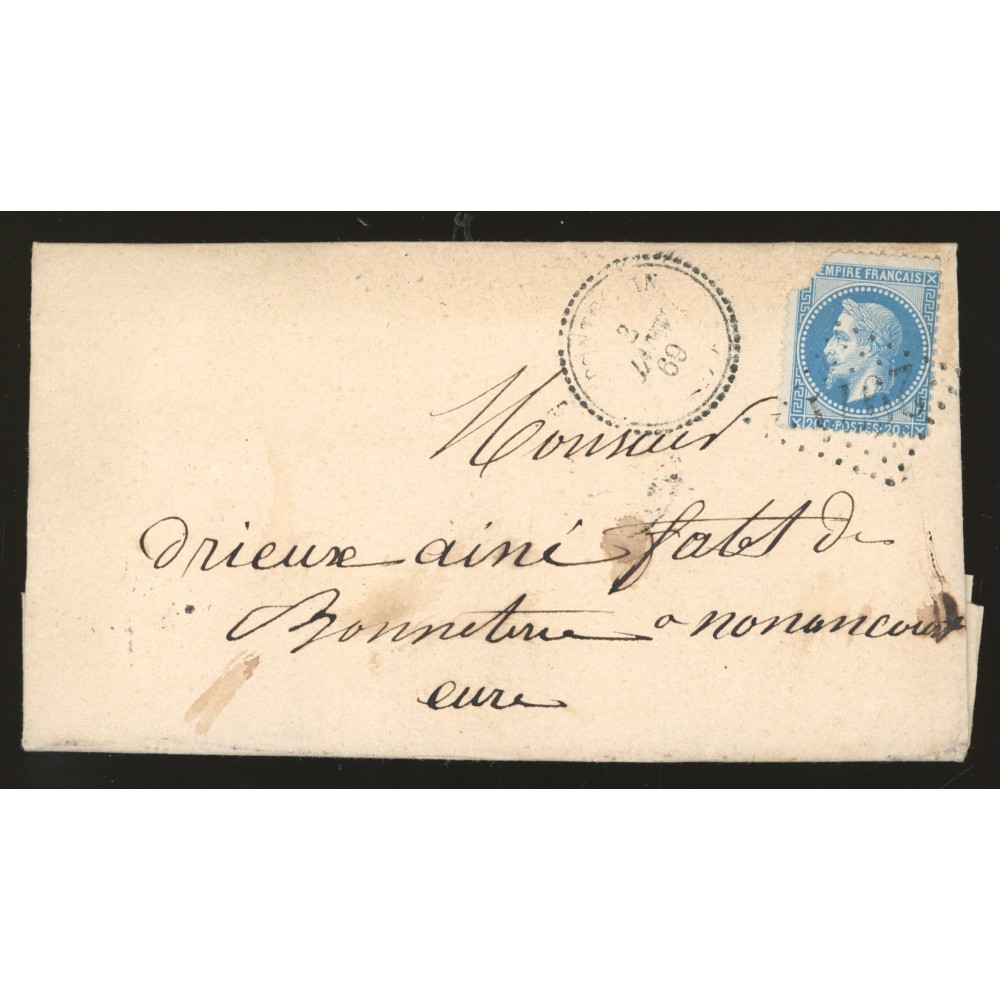 EMPIRE FRANÇAIS
3
JANV
69
20 C POSTES 20 C
Monsieur
drieux ainé fabt de
Bonneterie a nonancourt
eure